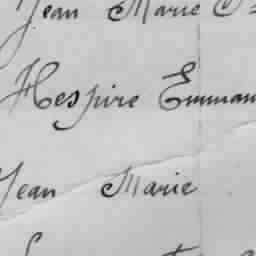 Jean Marie
Hespire Emman
Jean Marie